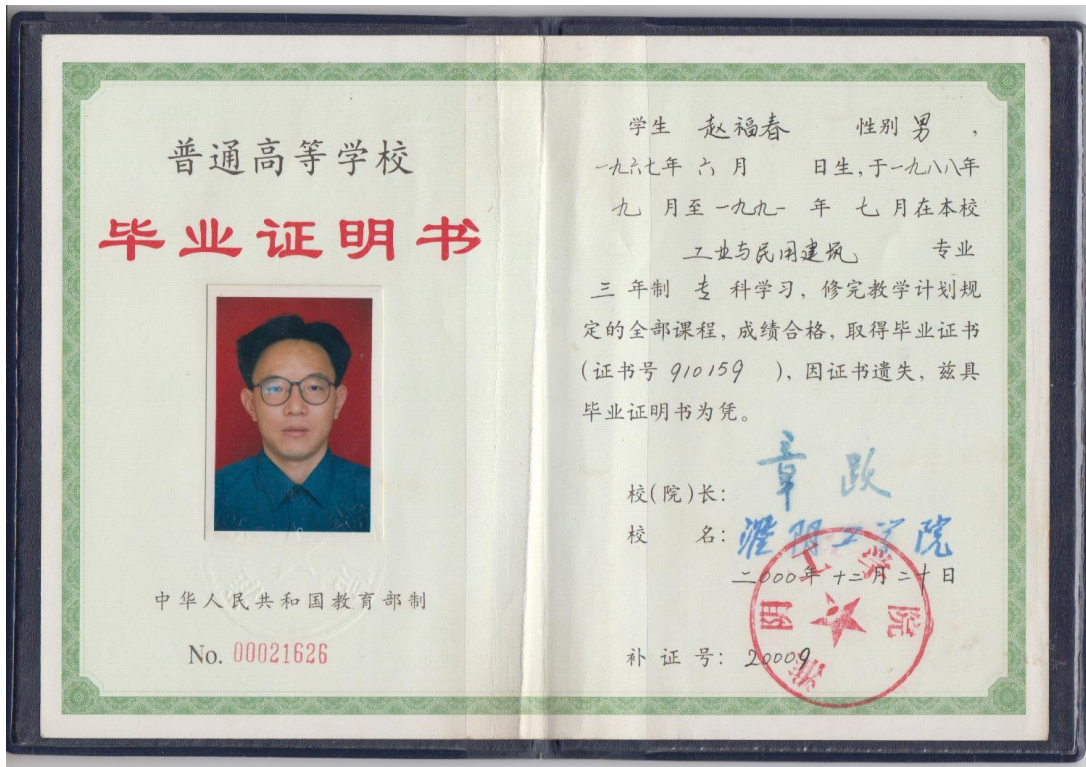 普通高等学校
毕业证明书
中华人民共和国教育部制
No. 00021626
学生 赵福春 性别 男 ，
一九六七年 六 月 日生，于一九八八年
九 月至一九九一 年 七 月在本校
工业与民用建筑 专业
三 年制 专 科学习，修完教学计划规
定的全部课程，成绩合格，取得毕业证书
（证书号 910159 ），因证书遗失，兹具
毕业证明书为凭。
校（院）长： 章跃
校 名： 淮阴工学院
二000年 十二月 二十日
补 证 号： 20009
淮阴工学院